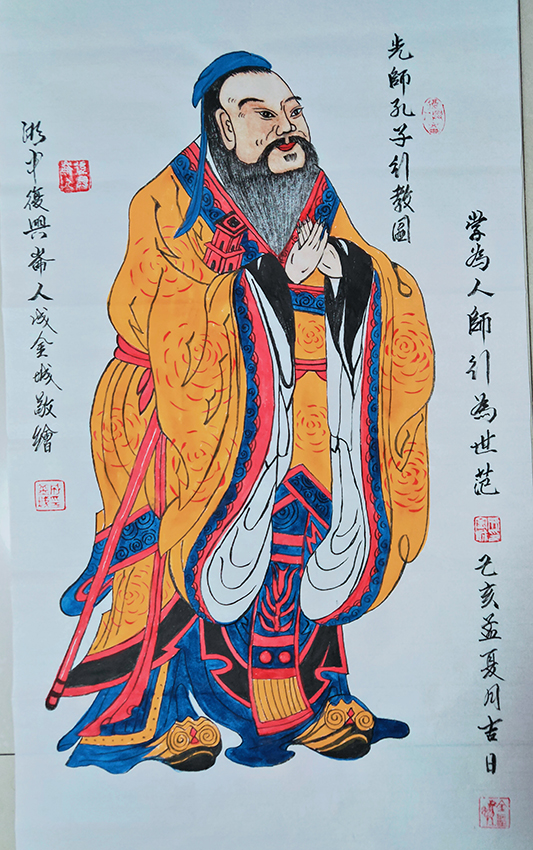 先師孔子行教圖
学為人師行為世范
己亥孟夏月吉日
湘中復興崙人成金城敬繪